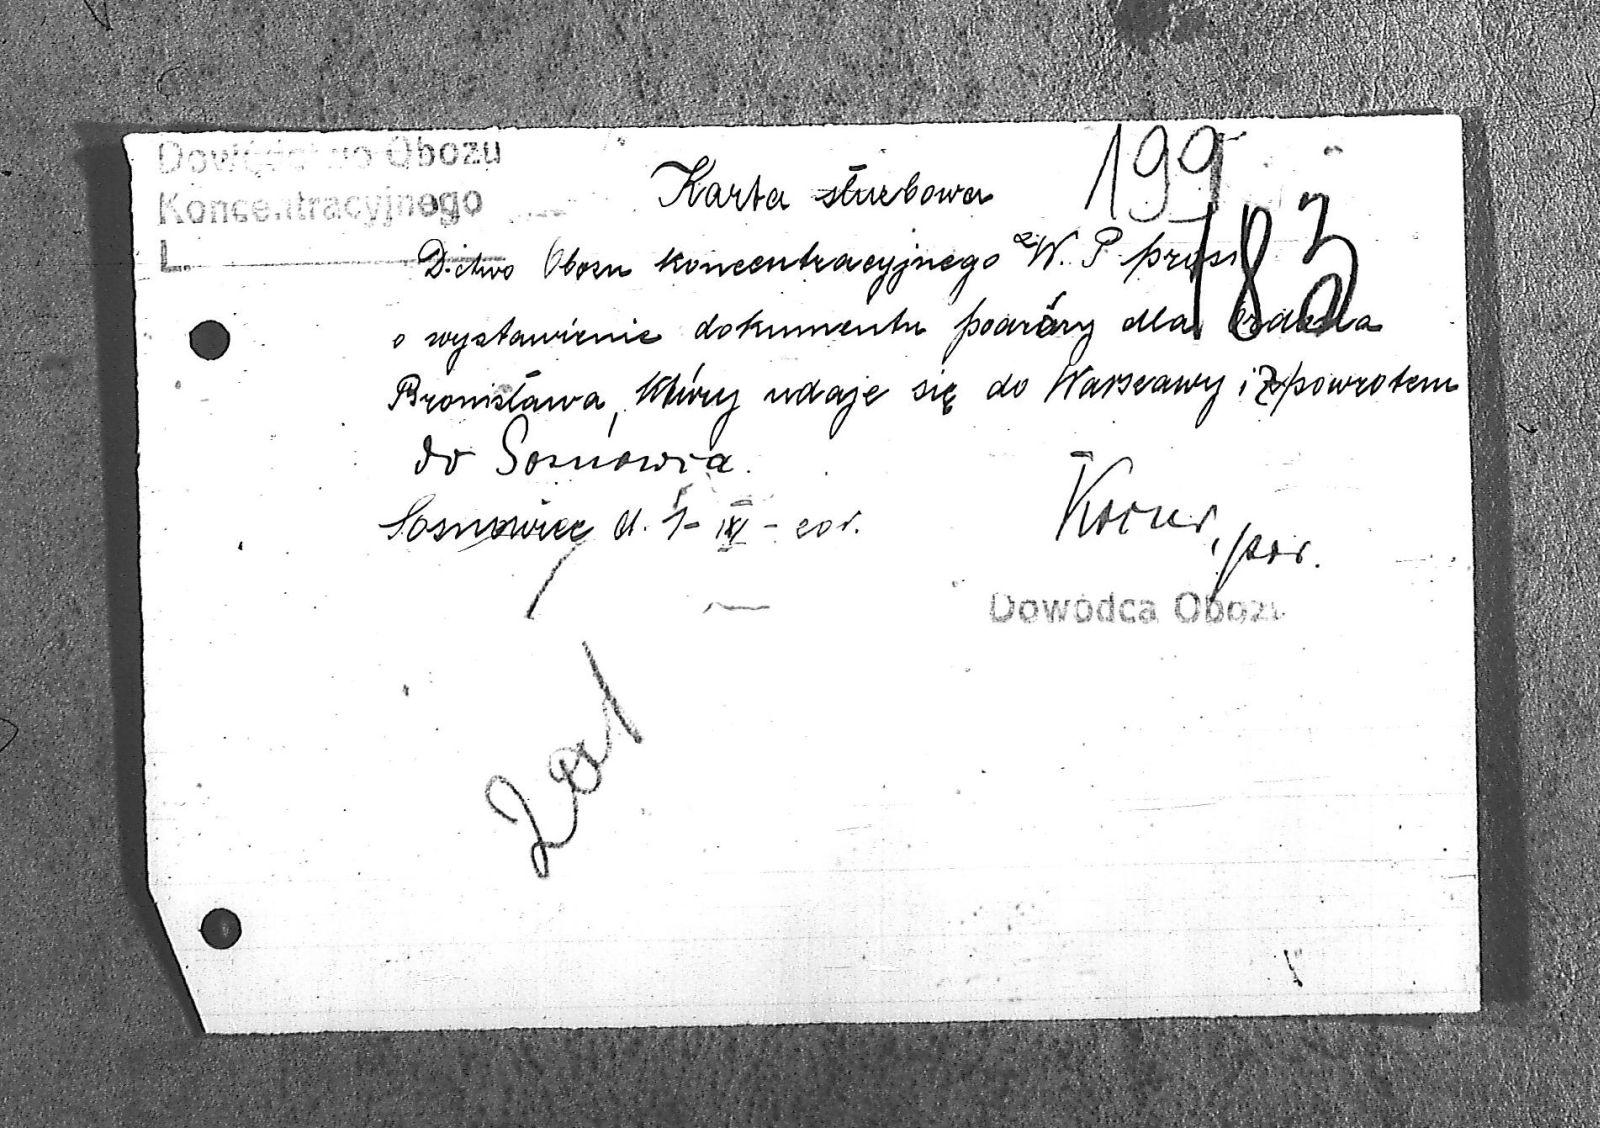 Dowództwo Obozu
Koncentracyjnego
L.
199
183
Karta służbowa
D-ctwo Obozu koncentracyjnego W. P. prosi
o wystawienie dokumentu podróży dla
Bronisława, który udaje się do Warszawy i z powrotem
do Sosnowca.
Sosnowiec d. 1- XI - 20 r.
por.
Dowódca Obozu